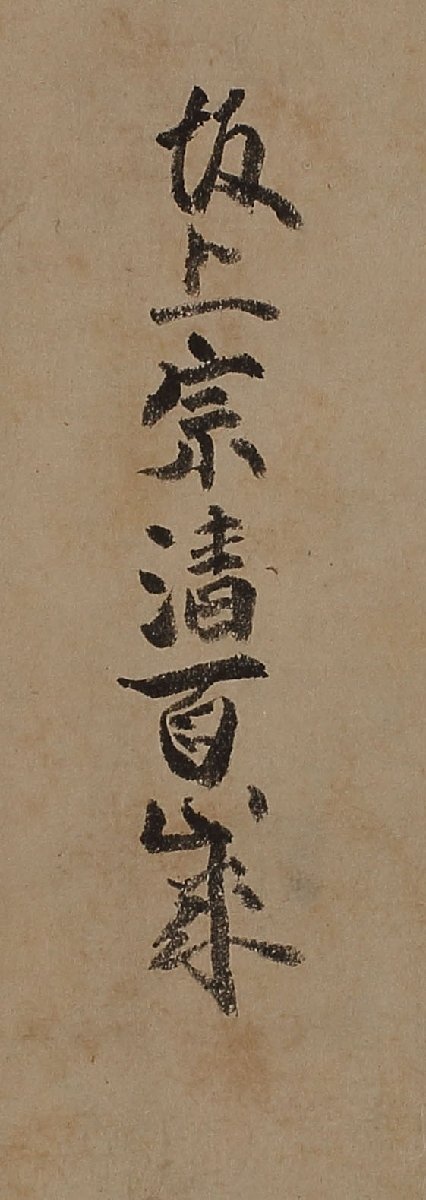 坂上宗清百